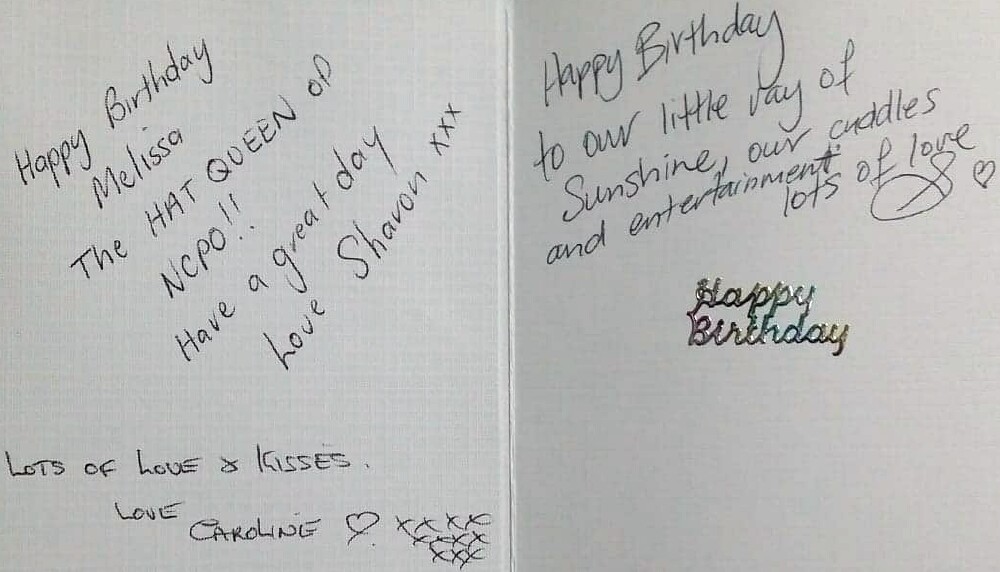 Happy Birthday
Melissa
The HAT QUEEN OF
NCPO!!
Have a great day
Love Sharon xxx
LOTS OF LOVE & KISSES.
LOVE CAROLINE ♡ xxxx
xxxx
xxx
Happy Birthday
to our little ray of
Sunshine, our cuddles
and entertainment.
lots of love
♡
Happy
Birthday